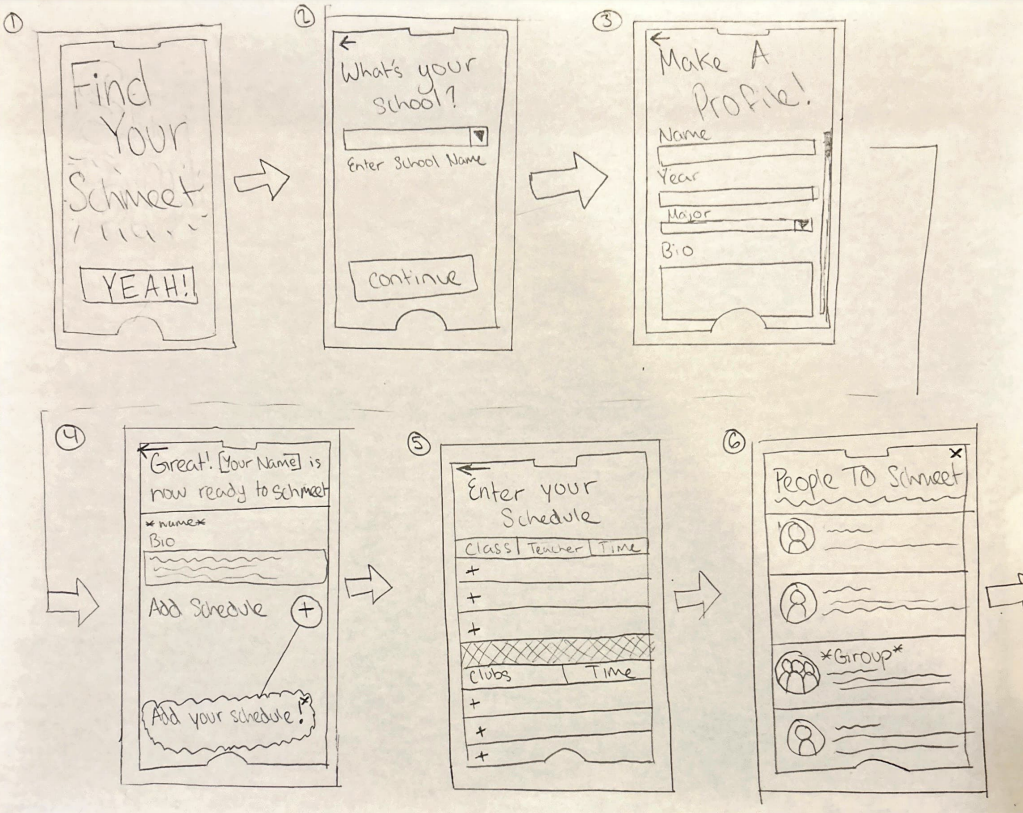 1
Find
Your
Schmeet
YEAH!
2
What's your
School?
Enter School Name
continue
3
Make A
Profile!
Name
Year
Major
Bio
4
Great! [Your Name] is
now ready to schmeet
*name*
Bio
Add Schedule +
Add your schedule! x
5
Enter your
Schedule
Class Teacher Time
+
+
+
Clubs Time
+
+
+
6
x
People To Schmeet
*Group*